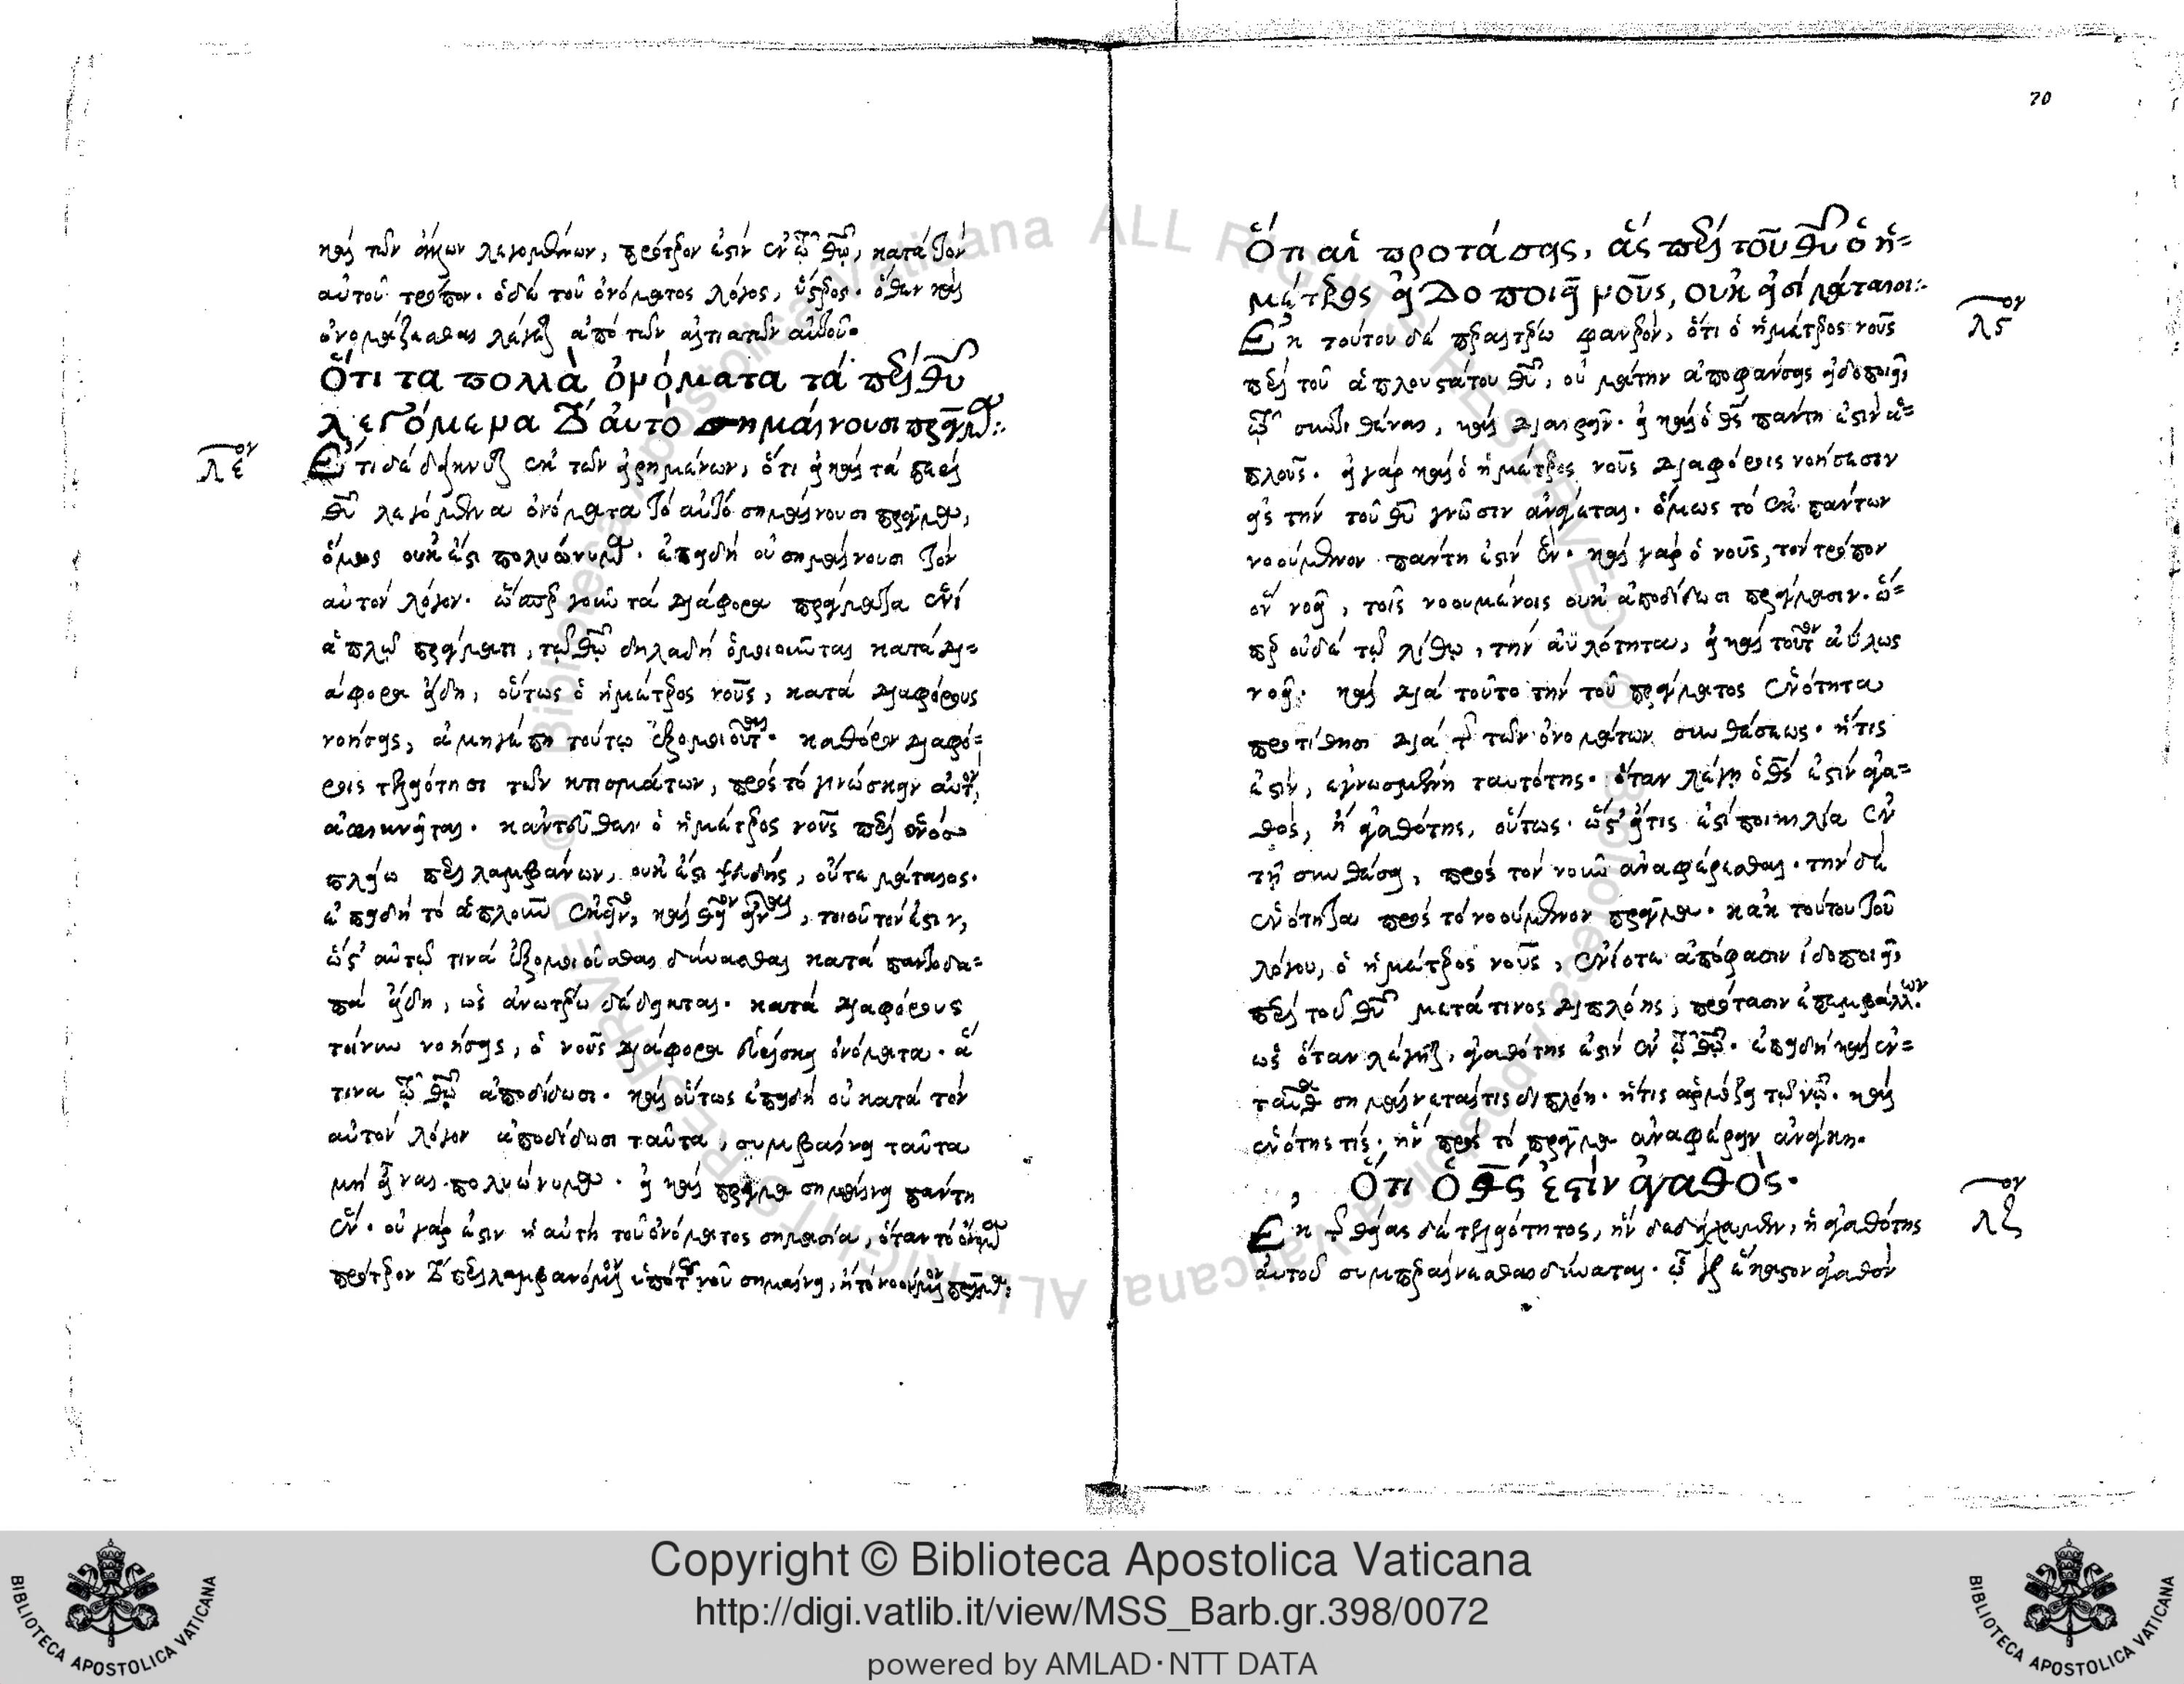 καὶ τῶν ἄλλων λεγομένων, πρότερον ἐστὶν ἐν τῷ θῷ, κατὰ τὸν
αὐτοῦ τρόπον. ὁ δὲ τοῦ ὀνόματος λόγος, ὕστερος. ὅθεν καὶ
ὀνομάζεσθαι λέγεται ἀπὸ τῶν αἰτιατῶν αὐτοῦ.
Ὅτι τὰ πολλὰ ὀνόματα τὰ περὶ θυ
λεγόμενα τὸ αὐτὸ σημαίνουσι πρᾶγμα:
λε ον
Ἔτι δὲ δείκνυται ἐκ τῶν εἰρημένων, ὅτι εἰ καὶ τὰ περὶ
θυ λεγόμενα ὀνόματα τὸ αὐτὸ σημαίνουσι πρᾶγμα,
ὅμως οὐκ ἔστι πολυώνυμα. ἐπειδὴ οὐ σημαίνουσι τὸν
αὐτὸν λόγον. ὥσπερ γοῦν τὰ διάφορα πράγματα ἑνὶ
ἁπλῷ πράγματι, τῷ θῷ δηλαδὴ ὁμοιοῦνται κατὰ δι=
άφορα εἴδη, οὕτως ὁ ἡμέτερος νοῦς, κατὰ διαφόρους
νοήσεις, ἀμηγέπη τούτῳ ἐξομοιοῦται. καθόσον διαφό=
ροις τελειότησι τῶν κτισμάτων, πρὸς τὸ γινώσκειν αὐτὸν,
ἀφικνεῖται. κἀντεῦθεν ὁ ἡμέτερος νοῦς περὶ ἑνὸς
πλείω περιλαμβάνων, οὐκ ἔστι ψευδὴς, οὔτε μάταιος.
ἐπειδὴ τὸ ἁπλοῦν ἐκεῖνο, καὶ θεῖον εἶναι, τοιοῦτον ἐστιν,
ὥστ' αὐτῷ τινὰ ἐξομοιοῦσθαι δύνασθαι κατὰ παντοδα=
πὰ εἴδη, ὡς ἀνωτέρω δέδεικται. κατὰ διαφόρους
τοίνυν νοήσεις, ὁ νοῦς διάφορα εὑρίσκει ὀνόματα. ἅ
τινα τῷ θῷ ἀποδίδωσι. καὶ οὕτως ἐπειδὴ οὐ κατὰ τὸν
αὐτὸν λόγον ἀποδίδωσι ταῦτα, συμβαίνει ταῦτα
μὴ εἶναι πολυώνυμα. εἰ καὶ πρᾶγμα σημαίνει πάντη
ἕν. οὐ γάρ ἐστιν ἡ αὐτὴ τοῦ ὀνόματος σημασία, ὅταν τὸ ὄνομα
πρότερον τὸ περιλαμβανόμενον ὑπὸ τοῦ νοῦ σημαίνῃ, ἢ τὸ νοούμενον πρᾶγμα:
70
Ὅτι αἱ προτάσεις, ἃς περὶ τοῦ θυ ὁ ἡ=
μέτερος εἰδοποιεῖ νοῦς, οὐκ εἰσὶ μάταιοι:
λς ον
Ἐκ τούτου δὲ περαιτέρω φανερὸν, ὅτι ὁ ἡμέτερος νοῦς
περὶ τοῦ ἁπλουστάτου θυ, οὐ μάτην ἀποφάνσεις εἰδοποιεῖ,
τῷ συντιθέναι, καὶ διαιρεῖν. εἰ καὶ ὁ θς πάντη ἐστὶν ἁ=
πλοῦς. εἰ γὰρ καὶ ὁ ἡμέτερος νοῦς διαφόροις νοήσεσιν
εἰς τὴν τοῦ θυ γνῶσιν ἀνάγεται. ὅμως τὸ ἐκ πάντων
νοούμενον πάντη ἐστὶν ἕν. καὶ γὰρ ὁ νοῦς, τὸν τρόπον
ὃν νοεῖ, τοῖς νοουμένοις οὐκ ἀποδίδωσι πράγμασιν. ὥσ=
περ οὐδὲ τῷ λίθῳ, τὴν ἀϋλότητα, εἰ καὶ τοῦτον ἀΰλως
νοεῖ. καὶ διὰ τοῦτο τὴν τοῦ πράγματος ἑνότητα
προτίθησι διὰ τῆς τῶν ὀνομάτων συνθέσεως. ἥτις
ἐστὶν, ἐγνωσμένη ταυτότης. ὅταν λέγῃ ὁ θς ἐστὶν ἀγα=
θὸς, ἢ ἀγαθότης, οὕτως. ὥστ' εἴ τις ἐστὶ ποικιλία ἐν
τῇ συνθέσει, πρὸς τὸν νοῦν ἀναφέρεσθαι. τὴν δὲ
ἑνότητα πρὸς τὸ νοούμενον πρᾶγμα. κἀκ τούτου τοῦ
λόγου, ὁ ἡμέτερος νοῦς, ἐνίοτε ἀπόφασιν εἰδοποιεῖ,
περὶ τοῦ θυ μετά τινος διπλόης, πρότασιν ἐπεμβάλλων.
ὡς ὅταν λέγηται, ἀγαθότης ἐστὶν ἐν τῷ θῷ. ἐπειδὴ καὶ ἐν=
ταῦθα σημαίνεταί τις διπλόη. ἥτις ἁρμόζει τῷ νῷ. καὶ
ἑνότης τίς. ἣν πρὸς τὸ πρᾶγμα ἀναφέρειν ἀνάγκη.
Ὅτι ὁ θς ἐστὶν ἀγαθός.
λζ ον
Ἐκ τῆς θείας δὲ τελειότητος, ἣν δεδείχαμεν, ἡ ἀγαθότης
αὐτοῦ συμπεραίνεσθαι δύναται. ᾧ γὰρ ἕκαστον ἀγαθὸν
Copyright © Biblioteca Apostolica Vaticana
http://digi.vatlib.it/view/MSS_Barb.gr.398/0072
powered by AMLAD·NTT DATA
BIBLIOTECA APOSTOLICA VATICANA
BIBLIOTECA APOSTOLICA VATICANA